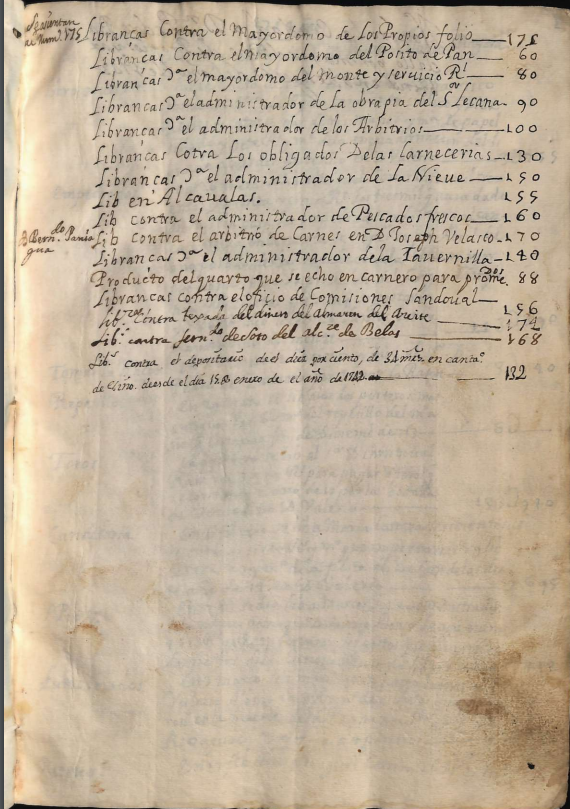 Librancas Contra el Mayordomo de Los Propios folio — 171
Librancas Contra el Mayordomo del Posito de Pan — 60
Librancas Dª el mayordomo del monte y seruicio Rl — 80
Librancas Dª el administrador de la obra pia del Sor Lecana — 90
Librancas Dª el administrador de los Arbitrios — 100
Librancas Cotra Los obligados Delas Carnecerias — 130
Librancas Dª el administrador de La Nieue — 150
Lib en Alcaualas. 155
Lib contra el administrador de Pescados frescos — 160
D Bern.do Pania
gua
Lib contra el arbitrio de Carnes en D Joseph Velasco — 170
Librancas Dª el administrador dela Tauernilla — 140
Producto del quarto que se echo en carnero para 88
Librancas contra el oficio de Comisiones Sandoual —
contra del dinero del Almacen del Aceite — 156
174
Lib.s contra fern.do de Soto del alc.ce de Belas — 168
Lib.s contra el depositario de el diez por ciento, de en
de desde el dia 15 de enero de el año de 1742 — 132